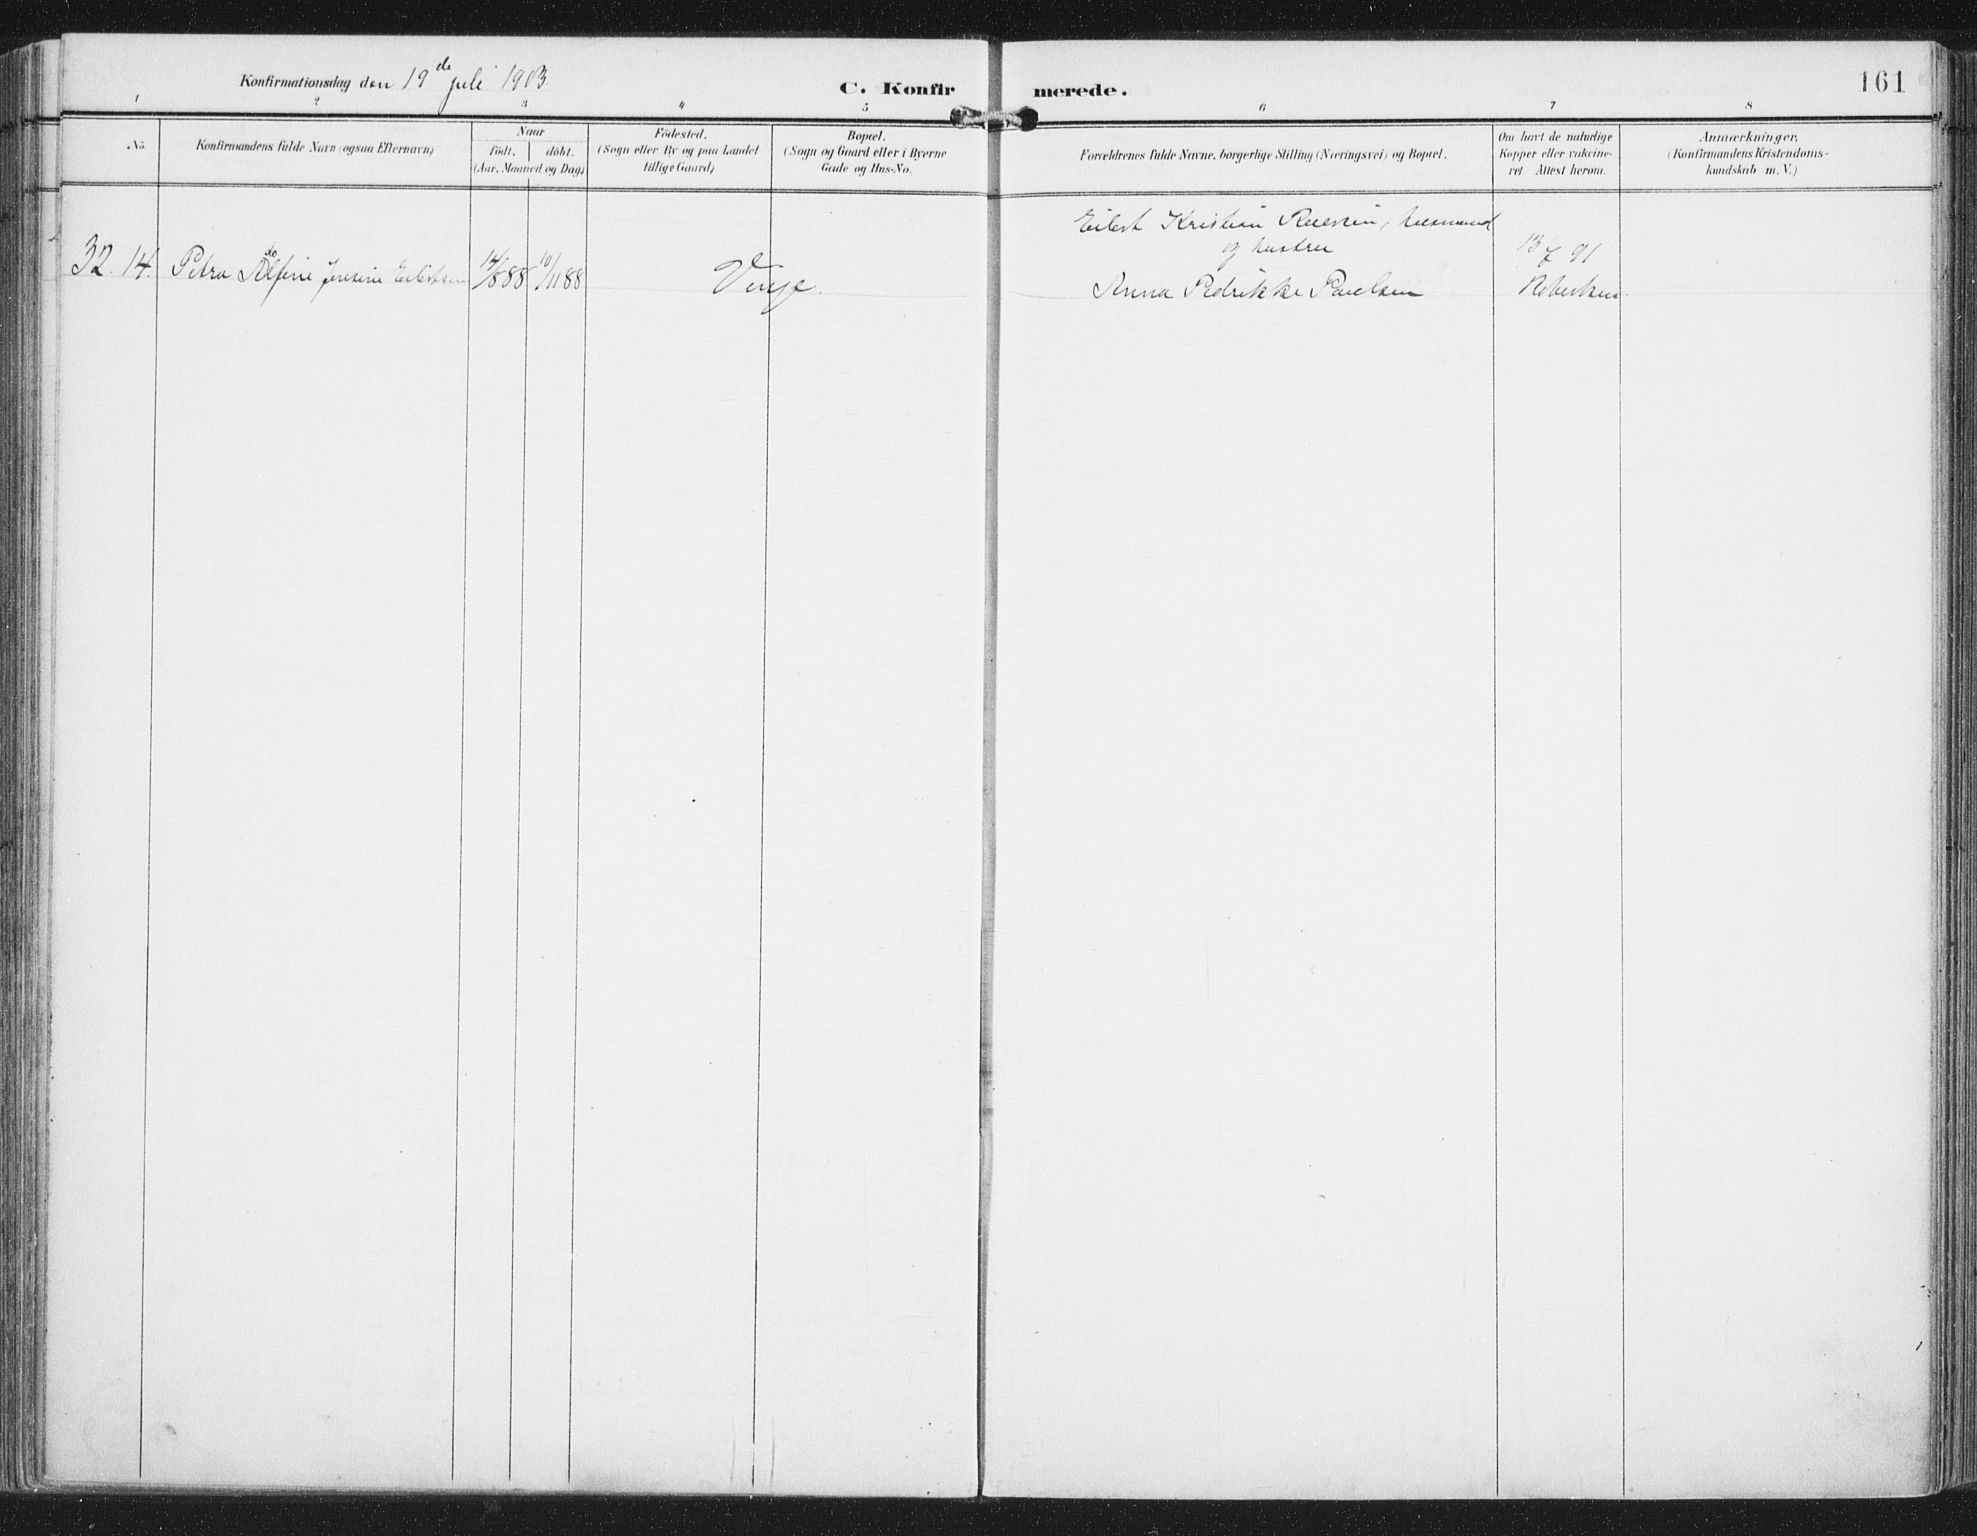 Konfirmationsdag den 19de juli 1903.
C. Konfirmerede.
161
1 2 3 4 5 6 7 8
No.
Konfirmandens fulde Navn (ogsaa Efternavn)
Naar
født. døbt.
(Aar, Maaned og Dag)
Fødested.
(Sogn eller By og paa Landet
tillige Gaard)
Bopæl.
(Sogn og Gaard eller i Byerne
Gade og Hus-No.
Forældrenes fulde Navne, borgerlige Stilling (Næringsvei) og Bopæl.
Om havt de naturlige
Kopper eller vakcine-
ret. Attest herom.
Anmærkninger.
(Konfirmandens Kristendoms-
kundskab m. V.)
32. 14. Petra Jensine 14/8 88 10/11 88 Vinje.
Eilert Kristian
og hustru
Anna Pedrikke Paulsen
13/7 91
Robertsen.